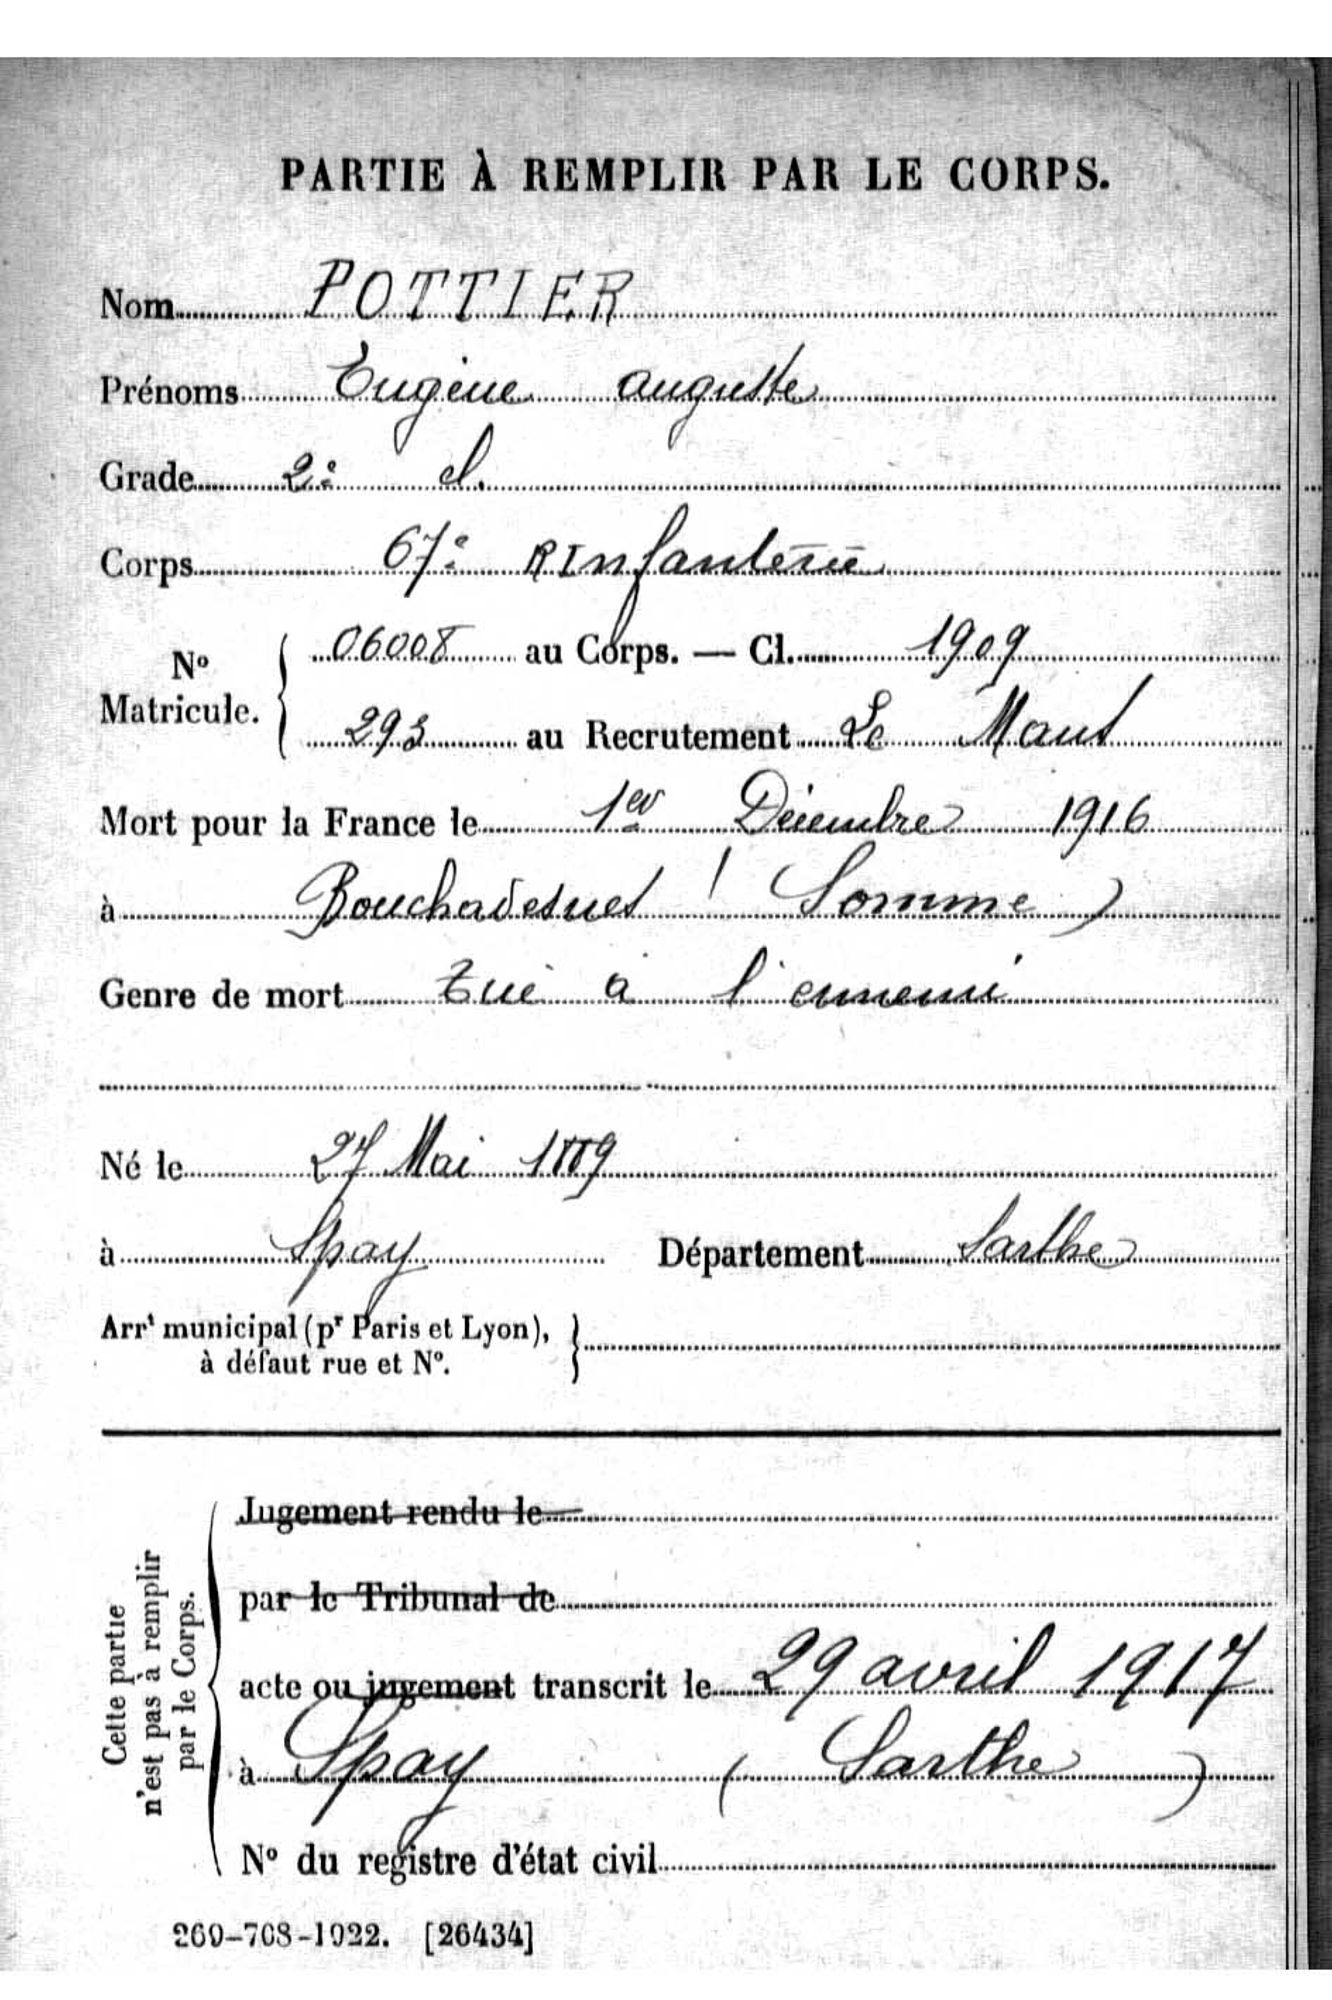 PARTIE À REMPLIR PAR LE CORPS.
Nom POTTIER
Prénoms Eugène auguste
Grade 2e cl.
Corps 67e R Infanterie
No Matricule. { 06008 au Corps. — Cl. 1909
293 au Recrutement Le Mans
Mort pour la France le 1er Décembre 1916
à Bouchavesnes (Somme)
Genre de mort Tué à l'ennemi
Né le 27 Mai 1889
à Spay Département Sarthe
Arrt municipal (pr Paris et Lyon), }
à défaut rue et No.
Cette partie
n'est pas à remplir
par le Corps.
Jugement rendu le
par le Tribunal de
acte ou jugement transcrit le 29 avril 1917
à Spay (Sarthe)
No du registre d'état civil
260-708-1922. [26434]